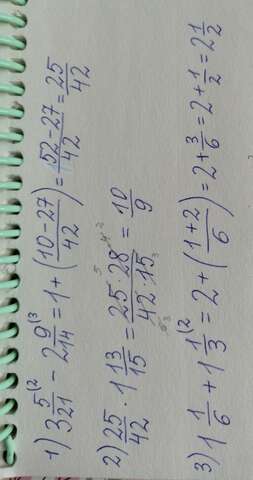 1) 3 5/21 (2 - 2 9/14 (3 = 1 + (10 - 27/42) = 52 - 27/42 = 25/42
2) 25/42 · 1 13/15 = 25 · 28/42 · 15 = 10/9
3) 1 1/6 + 1 1/3 (2 = 2 + (1 + 2/6) = 2 + 3/6 = 2 + 1/2 = 2 1/2